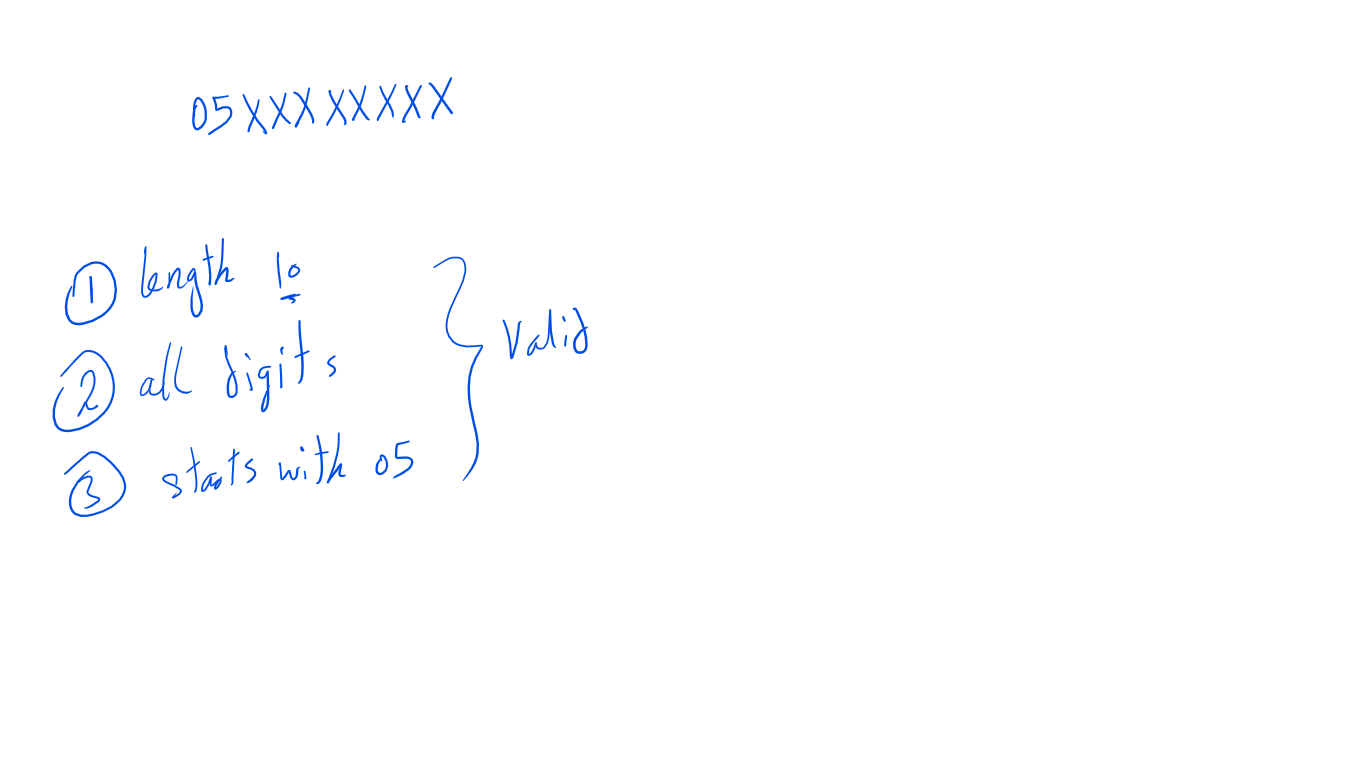 05XXXXXXXX
① length 10
② all digits
③ starts with 05
Valid